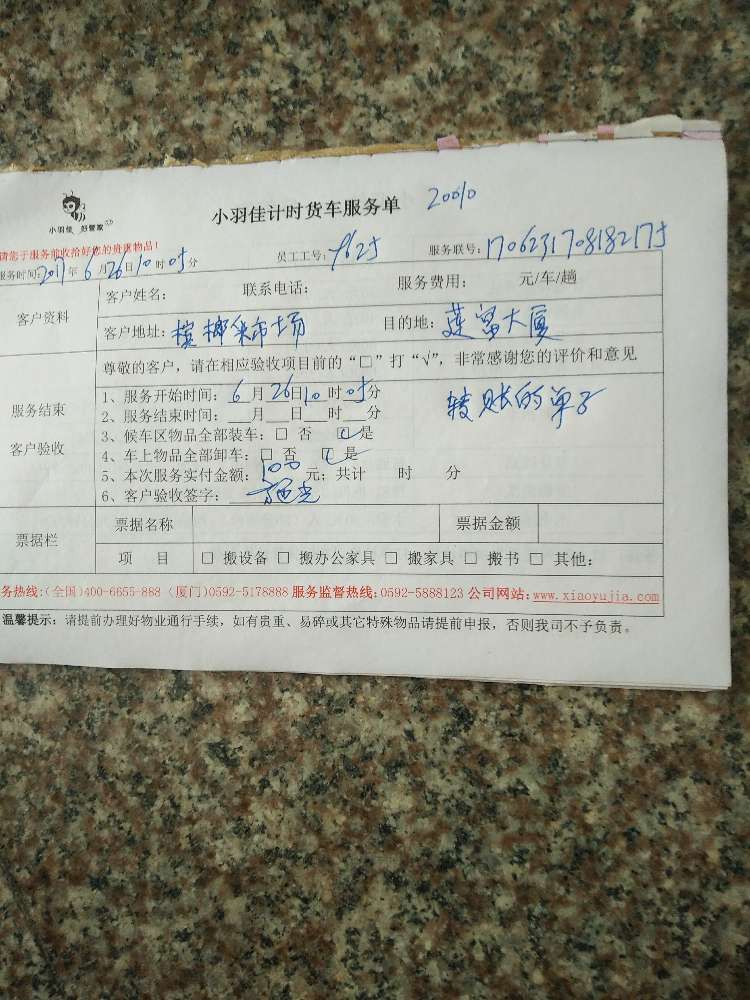 小羽佳 好管家
小羽佳计时货车服务单 20010
请您于服务前收拾好您的贵重物品!
服务时间:2017年6月26日10时05分 员工工号: 9625 服务联号:
客户资料
客户姓名: 联系电话: 服务费用: 元/车/趟
客户地址: 槟榔菜市场 目的地: 莲富大厦
服务结束
客户验收
尊敬的客户,请在相应验收项目前的“□”打“√”,非常感谢您的评价和意见
1、服务开始时间: 6月26日10时05分
转账的单子
2、服务结束时间: 月 日 时 分
3、候车区物品全部装车: □ 否 ☑ 是
4、车上物品全部卸车: □ 否 ☑ 是
5、本次服务实付金额: 100元; 共计 时 分
6、客户验收签字:
票据栏
票据名称 票据金额
项 目 □ 搬设备 □ 搬办公家具 □ 搬家具 □ 搬书 □ 其他:
务热线:(全国)400-6655-888 (厦门)0592-5178888 服务监督热线:0592-5888123 公司网站:www.xiaoyujia.com
温馨提示: 请提前办理好物业通行手续,如有贵重、易碎或其它特殊物品请提前申报,否则我司不予负责。